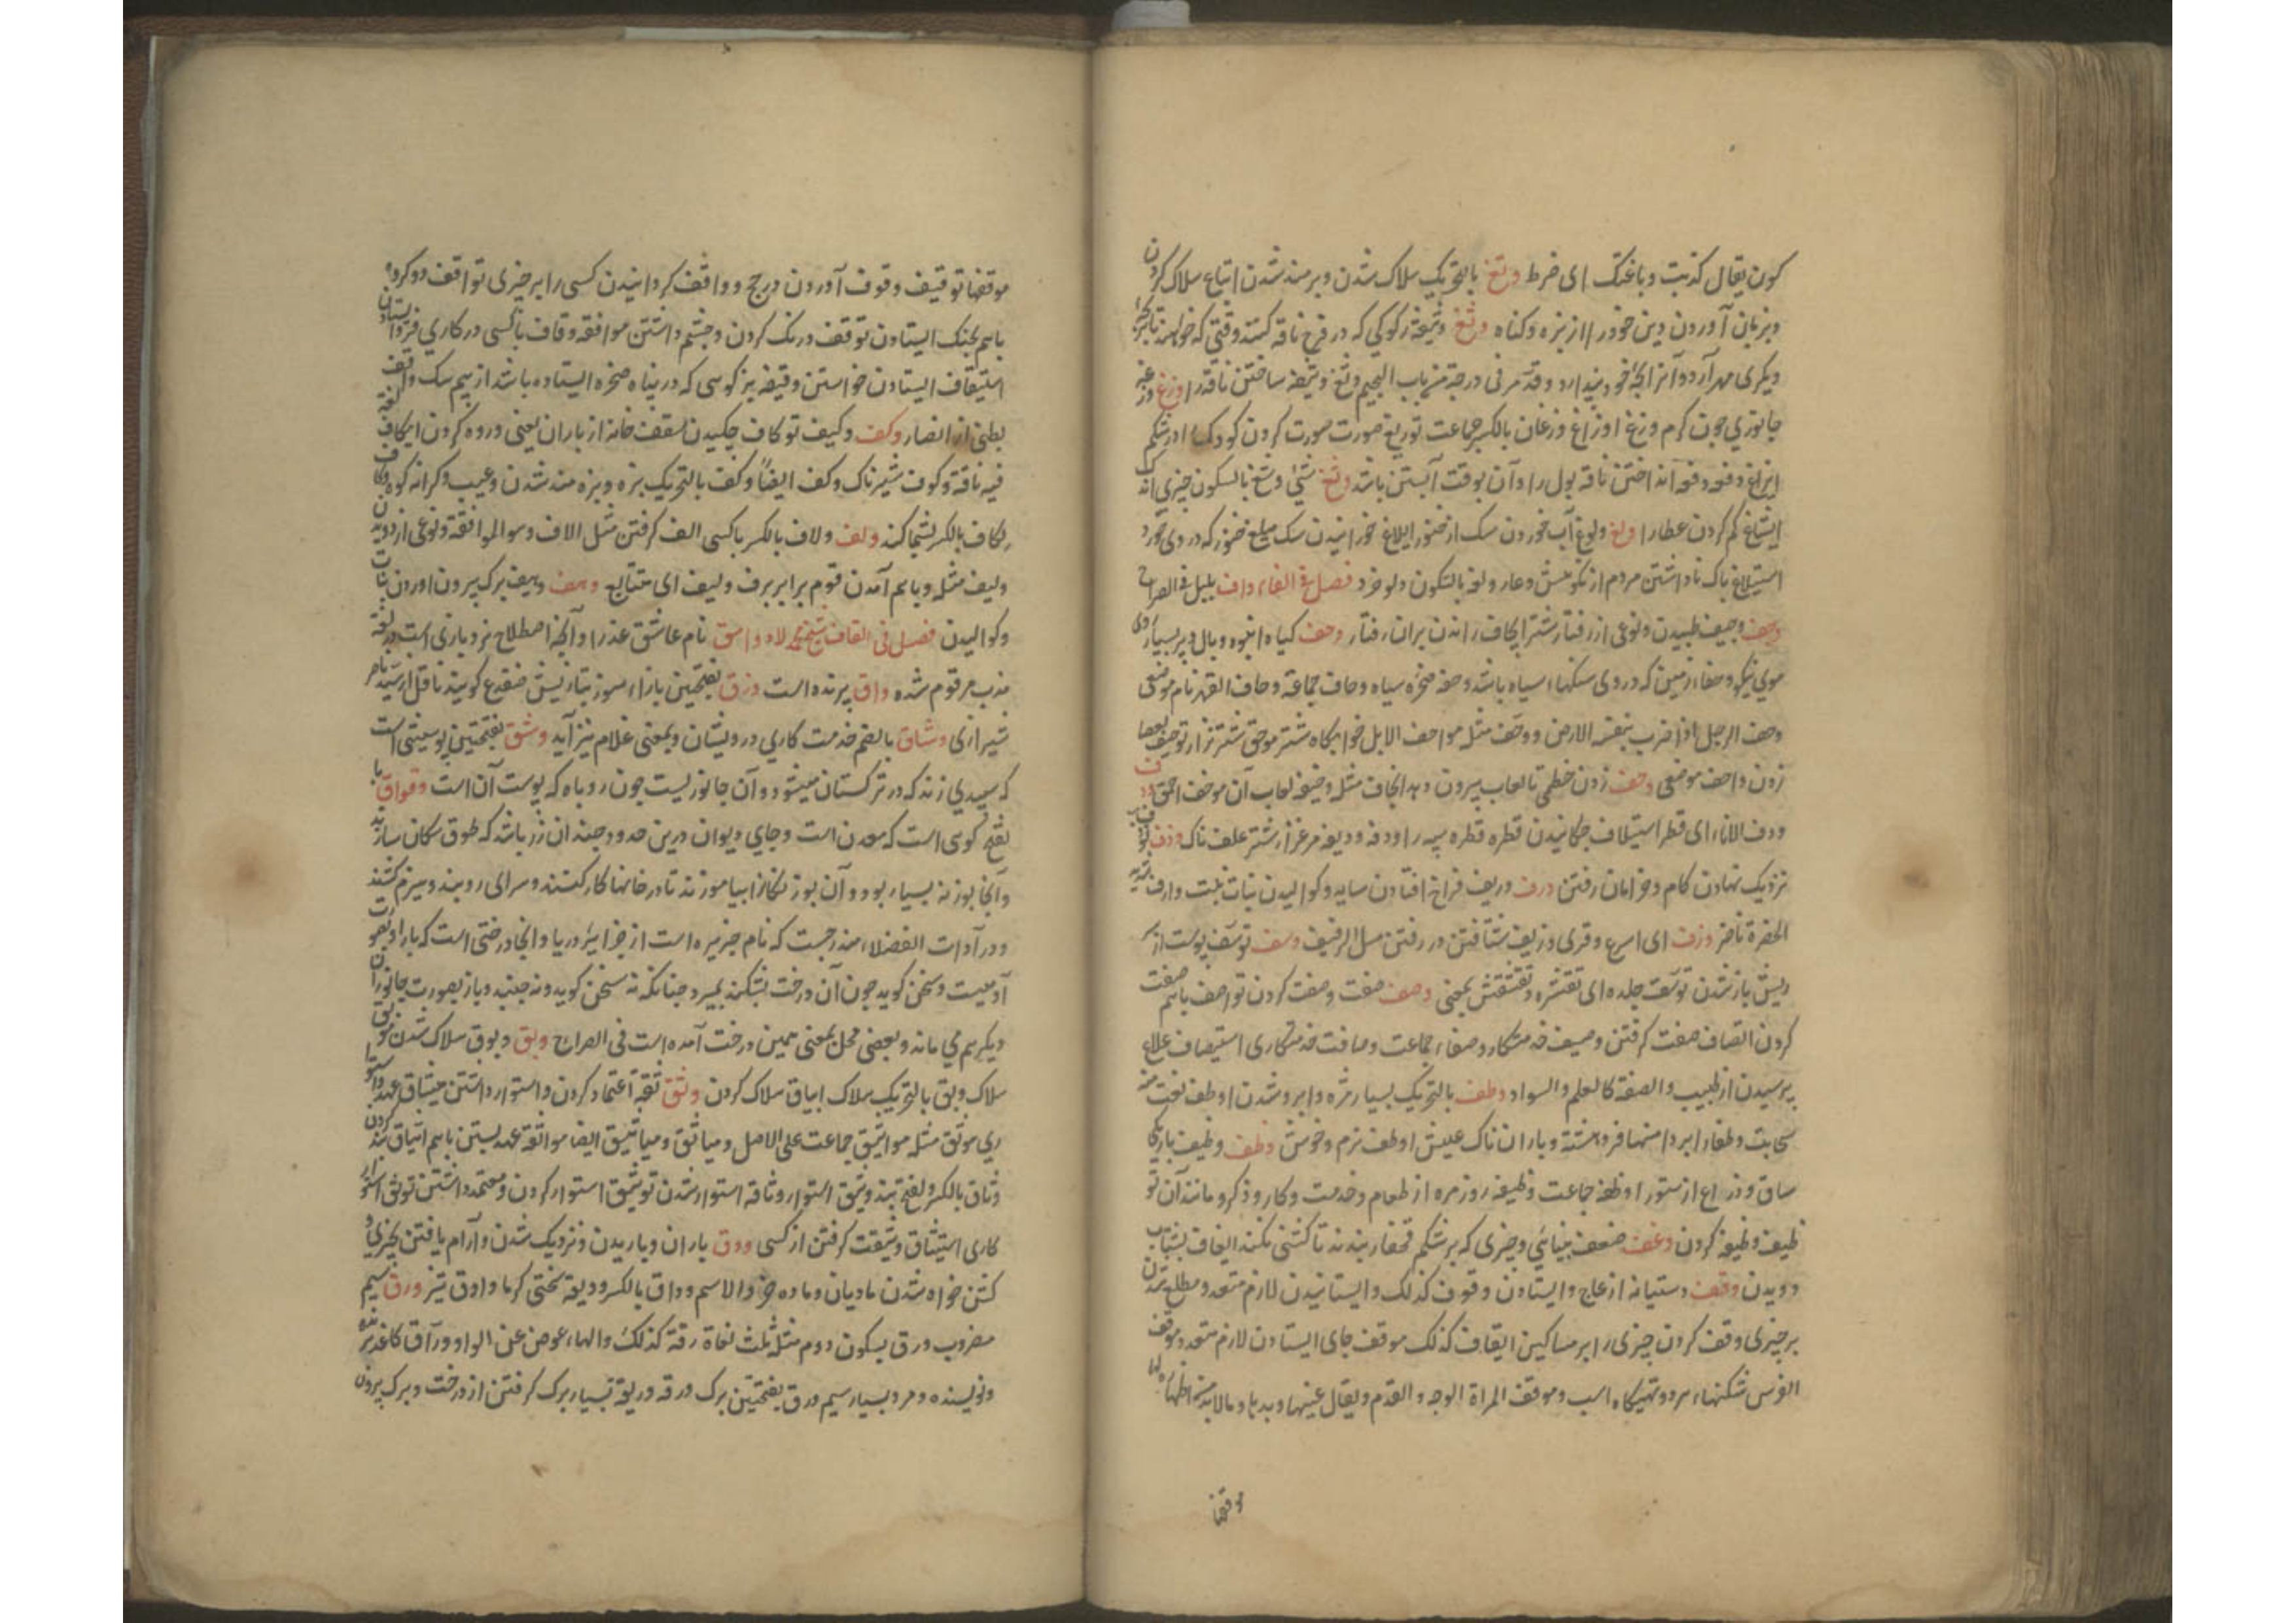 کون یقال کذبت وباغتک ای ضرط وتغ بالتحریک هلاک شدن وبزمند شدن ایتاغ هلاک کردن
وبزیان آوردن دین خود را از بزه وکناه وثغ وثیغة رکوکی که در فرج ناقه کنند وقتی که خواهند تا بر بچهٔ
دیکری مهر آرد وآنرا بچهٔ خود پندارد وقد مر فی درجة من باب الجیم وثغ وثیغة ساختن ناقه را وزغ وزغه
جانوری چون کرم وزغ اوزاغ وزغان بالکسر جماعت توزیغ صورت صورت کردن کودک را در شکم
ایزاغ انداختن ناقه بول را وآن بوقت آبستن باشد وشغ بالسکون چیزی اندک
ایشاغ کم کردن عطا را ولغ ولوغ آب خوردن سک از خنور ایلاغ خورانیدن سک میلغ خنور که در وی خورد
استیلاغ باک ناداشتن مردم از نکوهش وعار ولغة بالسکون دلو خرد فصل فی الفاء واف
وجف وجیف طپیدن ونوعی از رفتار شتر ایجاف راندن بران رفتار وحف کیاه انبوه وبال وپر بسیار
موی نیکو وحفاء زمین که در وی سنکهاء سیاه باشد وحفة صخرهٔ سیاه وحاف جماعة وحاف القهر نام موضعی
وحف الرجل اذا ضرب بنفسه الارض ووحّف مثله مواحف الابل خوابکاه شتر
زدن واحف موضعی وخف زدن خطمی تا لعاب بیرون دهد ایخاف مثله وخیفه لعاب آن موخف احمق
ودف الاناء ای قطر استیداف چکانیدن قطره قطره پیه را ودفه ودیفه مرغزار شتر علف ناک وذف
نزدیک نهادن کام وخرامان رفتن ورف وریف فراخ افتادن سایه وکوالیدن نبات نبت وارف
الخضرة ناضر وزف ای اسرع وقری وزیف شتافتن در رفتن وسف توسّف پوست از
ریش باز شدن توسفت جلده ای تقشره وتقشقش بمعنی وصف صفت وصفت کردن تواصف باهم صفت
کردن اتصاف صفت کرفتن وصیف خدمتکار وصفاء جماعت وصافت خدمتکاری استیصاف علاج
پرسیدن از طبیب والصفة کالعلم والسواد وطف بالتحریک بسیار مژه وابرو شدن اوطف نعت منه
سحابت وطفاء ابر دامنها فروهشته وباران ناک عیش اوطف نرم وخوش وظف وظیف باریکی
ساق وذراع از ستور اوظفه جماعت وظیفه روزمره از طعام وخدمت وکار وذکر ومانند آن تو
ظیف وظیفه کردن وغف ضعف بینائی وچیزی که بر شکم قچغار بندند تا کشنی نکند ایغاف بشتاب
دویدن وقف دستیانه از عاج وایستادن وقوف کذلک وایستانیدن لازم متعد ومطلع شدن
بر چیزی وقف کردن چیزی را بر مساکین ایقاف کذلک موقف جای ایستادن لازم متعد وموقف
الفرس شکنهاء هر دو تهیکاه اسب وموقف المراة الوجه والقدم ویقال عینیها ویدیها ومالابد من اظهارها
موقفا
موقفها توقیف وقوف آوردن در حج وواقف کردانیدن کسی را بر چیزی تواقف دو کروه
باهم بجنک ایستادن توقف درنک کردن وچشم داشتن مواقفه وقاف با کسی در کاری فروایستادن
استیقاف ایستادن خواستن وقیفه بز کوهی که در پناه صخره ایستاده باشد از بیم سک واقف
بطنی از انصار وکف وکیف توکاف چکیدن سقف خانه از باران یعنی وروه کردن ایکاف لغة
فیه ناقة وکوف شیرناک وکف ایضاً وکف بالتحریک بزه وبزه مند شدن وعیب وکرانه کوه وکاف
رکاف بالکسر پشماکند ولف ولاف بالکسر با کسی الف کرفتن مثل الاف وهو الموافقة ونوعی از دویدن
ولیف مثله وباهم آمدن قوم برابر برف ولیف ای متتابع وهف وهیف برک بیرون آوردن نبات
وکوالیدن فصل فی القاف شیخ محمد لاد وامق نام عاشق عذرا وآنچه اصطلاح نرد بازی است در لغة
عذب مرقوم شده واق پرنده است وزق بفتحتین باز اء موز بتازیش ضفدع کویند ناقل از سید ناصر
شیرازی وشاق بالضم خدمت کاری درویشان وبمعنی غلام نیز آید وشق بفتحتین پوستینی است
که سپیدی زند که در ترکستان میشود وآن جانوریست چون روباه که پوست آن است وقواق با
لفتح کوهی است که معدن است وجای دیوان درین حدود چندان زر باشد که طوق سکان سازند
وآنجا بوزنه بسیار بود وآن بوزنکانرا بیاموزند تا در خانها کار کنند وسرای روبند وهیزم کشند
ودر آدات الفضلاء مندرجست که نام جزیره است از جزایرٔ دریا وآنجا درختی است که بار او بصورت
آدمیست وسخن کوید چون آن درخت بشکند بمیرد چنانکه نه سخن کوید ونه جنبد وباز بصورت جانوران
دیکر هم می ماند وبعضی محل بمعنی همین درخت آمده است فی الصراح وبق وبوق هلاک شدن موبق
هلاک وبق بالتحریک هلاک ایباق هلاک کردن وثق ثقة اعتماد کردن واستوار داشتن میثاق عهد واستوا
ری موثق مثله مواثیق جماعت علی الاصل ومیاثق ومیاثیق ایضا مواثقة عهد بستن باهم ایثاق بند کردن
وثاق بالکسر ولفتح بند وثیق استوار وثاقة استوار شدن توثیق استوار کردن ومعتمد داشتن توثق استوار
کاری استیثاق وثیقت کرفتن از کسی ودق باران وباریدن ونزدیک شدن وآرام یافتن بچیزی و
کشن خواه شدن مادیان وماده خر والاسم وداق بالکسر ودیقة سختی کرما وادق تیز ورق سیم
مضروب ورق بسکون دوم مثله ثلث لغاة رقة کذلک والهاء عوض عن الواو وراق کاغذ بر
ونویسنده ومرد بسیار سیم ورق بفتحتین برک ورقه وریقة بسیار برک کرفتن از درخت وبرک بیرون